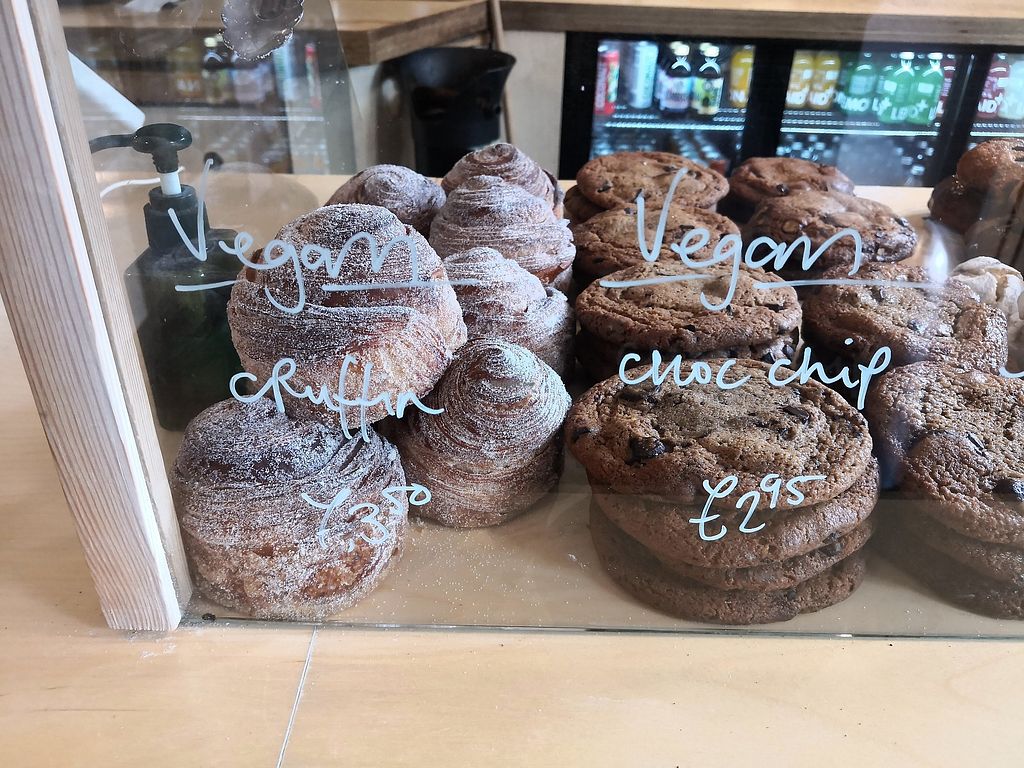 Vegan
cRuffin
£3.50
Vegan
choc chip
£2.95